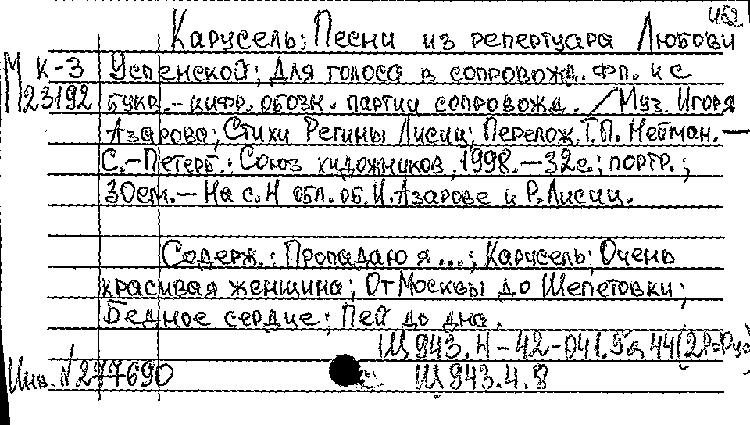 452
Карусель: Песни из репертуара Любови
М К-3 Успенской; Для голоса в сопровожд. фп. и с
М23192 букв.-цифр. обозн. партии сопровожд. / Муз. Игоря
Азарова; Стихи Регины Лисиц; Перелож. Т.П. Нейман. —
С.-Петерб.: Союз художников, 1998. — 32с.; портр.;
30см. — На с. Н обл. об. И. Азарове и Р. Лисиц.
Содерж.: Пропадаю я...; Карусель; Очень
красивая женщина; От Москвы до Шепетовки;
Бедное сердце; Пей до дна.
Щ943.Н-42-041.
Инв. №277690 Щ943.4.8